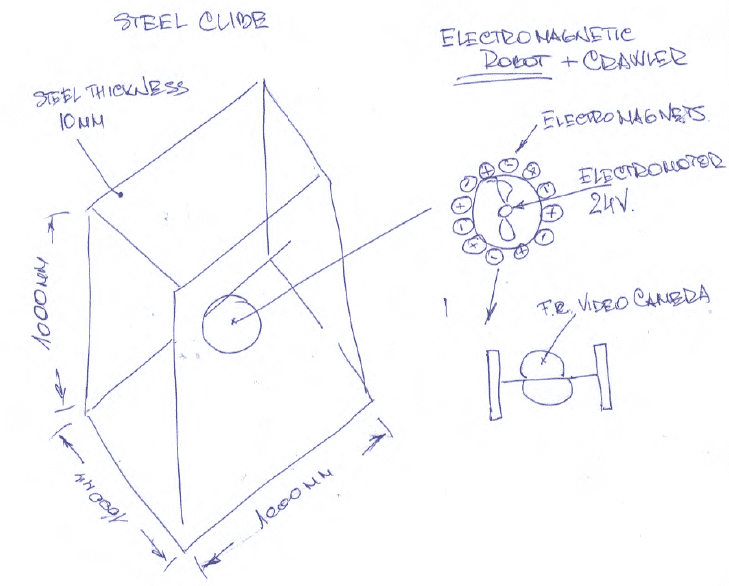 STEEL CUBE
ELECTROMAGNETIC
ROBOT + CRAWLER
STEEL THICKNESS
10MM
ELECTROMAGNETS
ELECTROMOTER
24V.
1000MM
F.R. VIDEO CAMERA
1000MM
1000MM